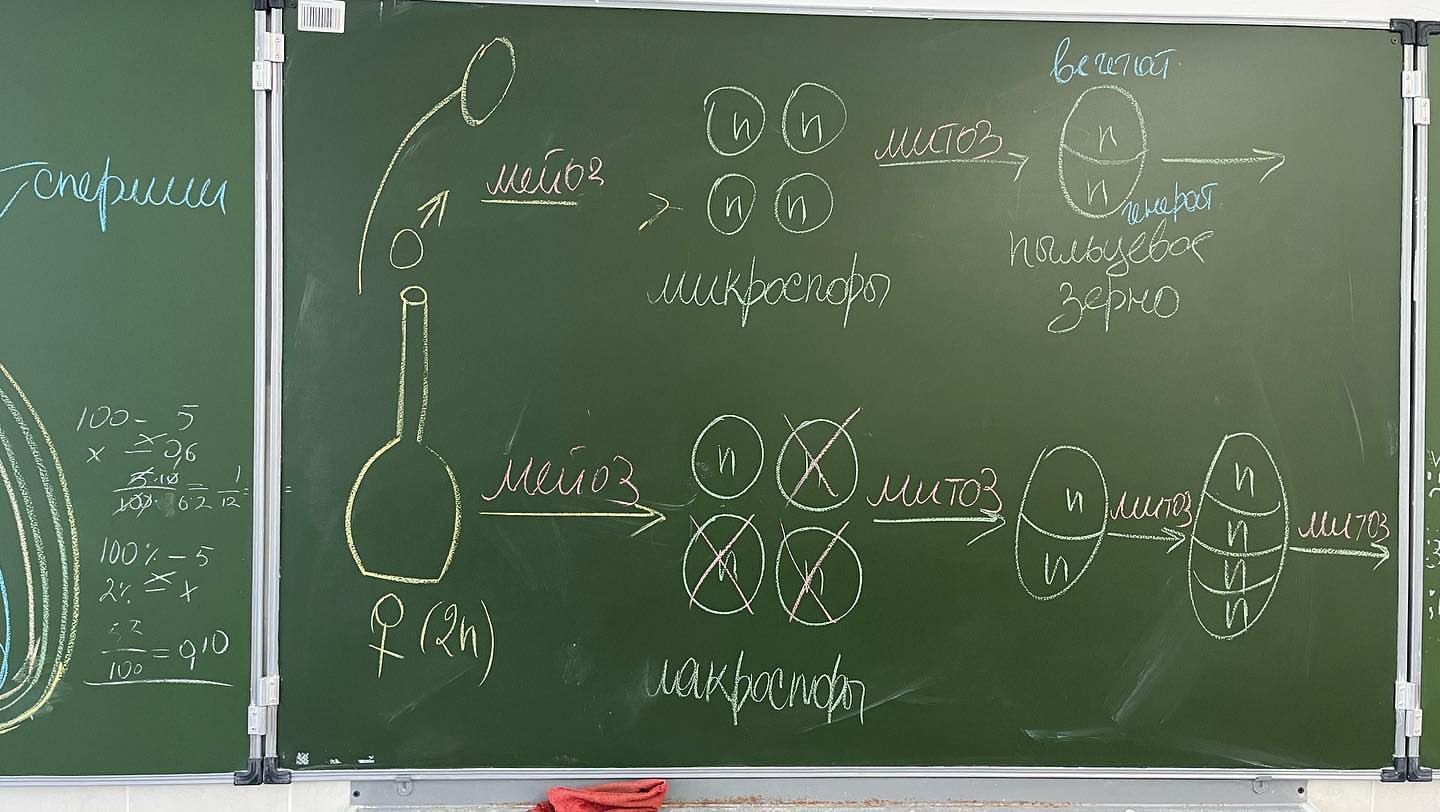 спермии
100 - 5
x - 0,6
100% - 5
2% - x
100
= 0,10
мейоз
n n
n n
микроспоры
митоз
вегетат.
n
n
генерат.
пыльцевое
зерно
♂
♀ (2n)
мейоз
n n
n n
макроспоры
митоз
n
n
митоз
n
n
n
n
митоз